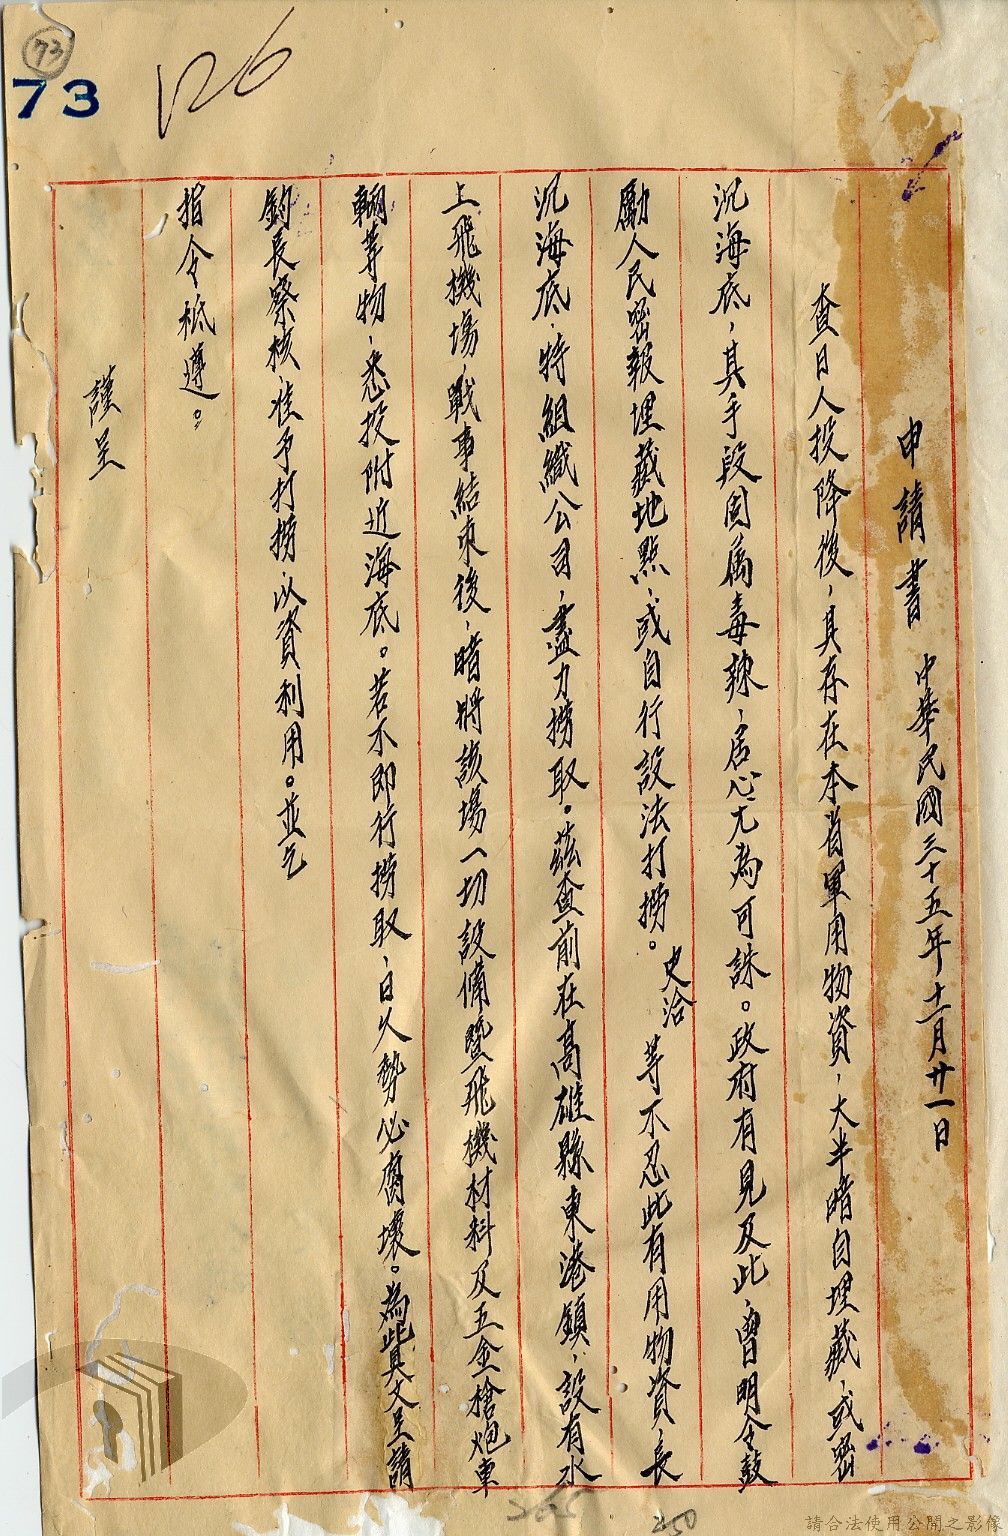 73
73
126
申請書 中華民國三十五年十一月廿一日
查日人投降後，其存在本省軍用物資，大半暗自埋藏，或密
沉海底，其手段固屬毒辣，居心尤為可誅。政府有見及此，曾明令鼓
勵人民密報埋藏地點，或自行設法打撈。史洽等不忍此有用物資，長
沉海底，特組織公司，盡力撈取。茲查前在高雄縣東港鎮，設有水
上飛機場，戰事結束後，暗將該場一切設備暨飛機材料及五金槍炮車
輛等物，悉投附近海底。若不即行撈取，日久勢必腐壞。為此具文呈請
鈞長察核，准予打撈，以資利用。並乞
指令祗遵。
謹呈
250
請合法使用公開之影像